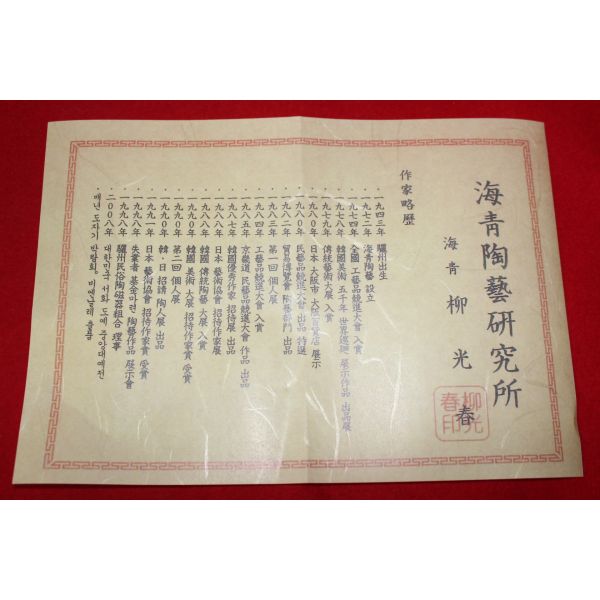 海青陶藝硏究所
海青 柳光春
柳光春印
作家略歷
· 一九四三年 驪州出生
· 一九七二年 海青陶藝 設立
· 一九七四年 全國 工藝品競進大會 入賞
· 一九七八年 韓國美術 五千年 世界巡廻 展示作品 出品展
· 一九七九年 傳統藝術大展 入賞
· 一九八〇年 日本 大阪市 大阪百貨店 展示
· 一九八〇年 民藝品競進大會 出品 特選
· 一九八二年 貿易博覽會 陶藝部門 出品
· 一九八三年 第一回 個人展
· 一九八四年 工藝品競進大會 入賞
· 一九八五年 京畿道 民藝品競進大會 作品 入賞
· 一九八七年 韓國優秀作家 招待展 出品
· 一九八八年 日本 藝術協會 招待作家展
· 一九八八年 韓國 傳統陶藝 大展 入賞
· 一九九〇年 韓國 美術 大展 招待作家賞 受賞
· 一九九〇年 第二回 個人展
· 一九九〇年 韓·日 招請 陶人展 出品
· 一九九一年 日本 藝術協會 招待作家賞 受賞
· 一九九八年 失業者 基金마련 陶藝作品 展示會
· 一九九八年 驪州民俗陶磁器組合 理事
· 二〇〇八年 대한민국 서화 도예 중앙대예전
· 매년 도자기 박람회, 미예총레 출품